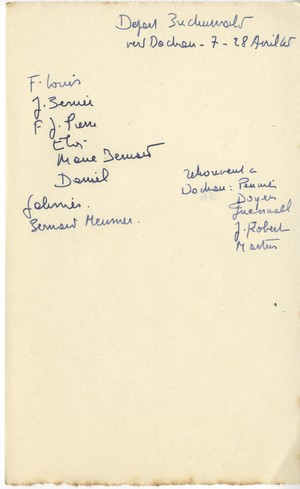 Depart Buchenwald
vers Dachau - 7 - 28 Avril 45
F. Louis
J. Bernier
F J. Pierre
Eloi
Marie Bernard
Daniel
retrouvent a
Dachau:
Doyen
J. Robert
Martin
Bernard Meunier.